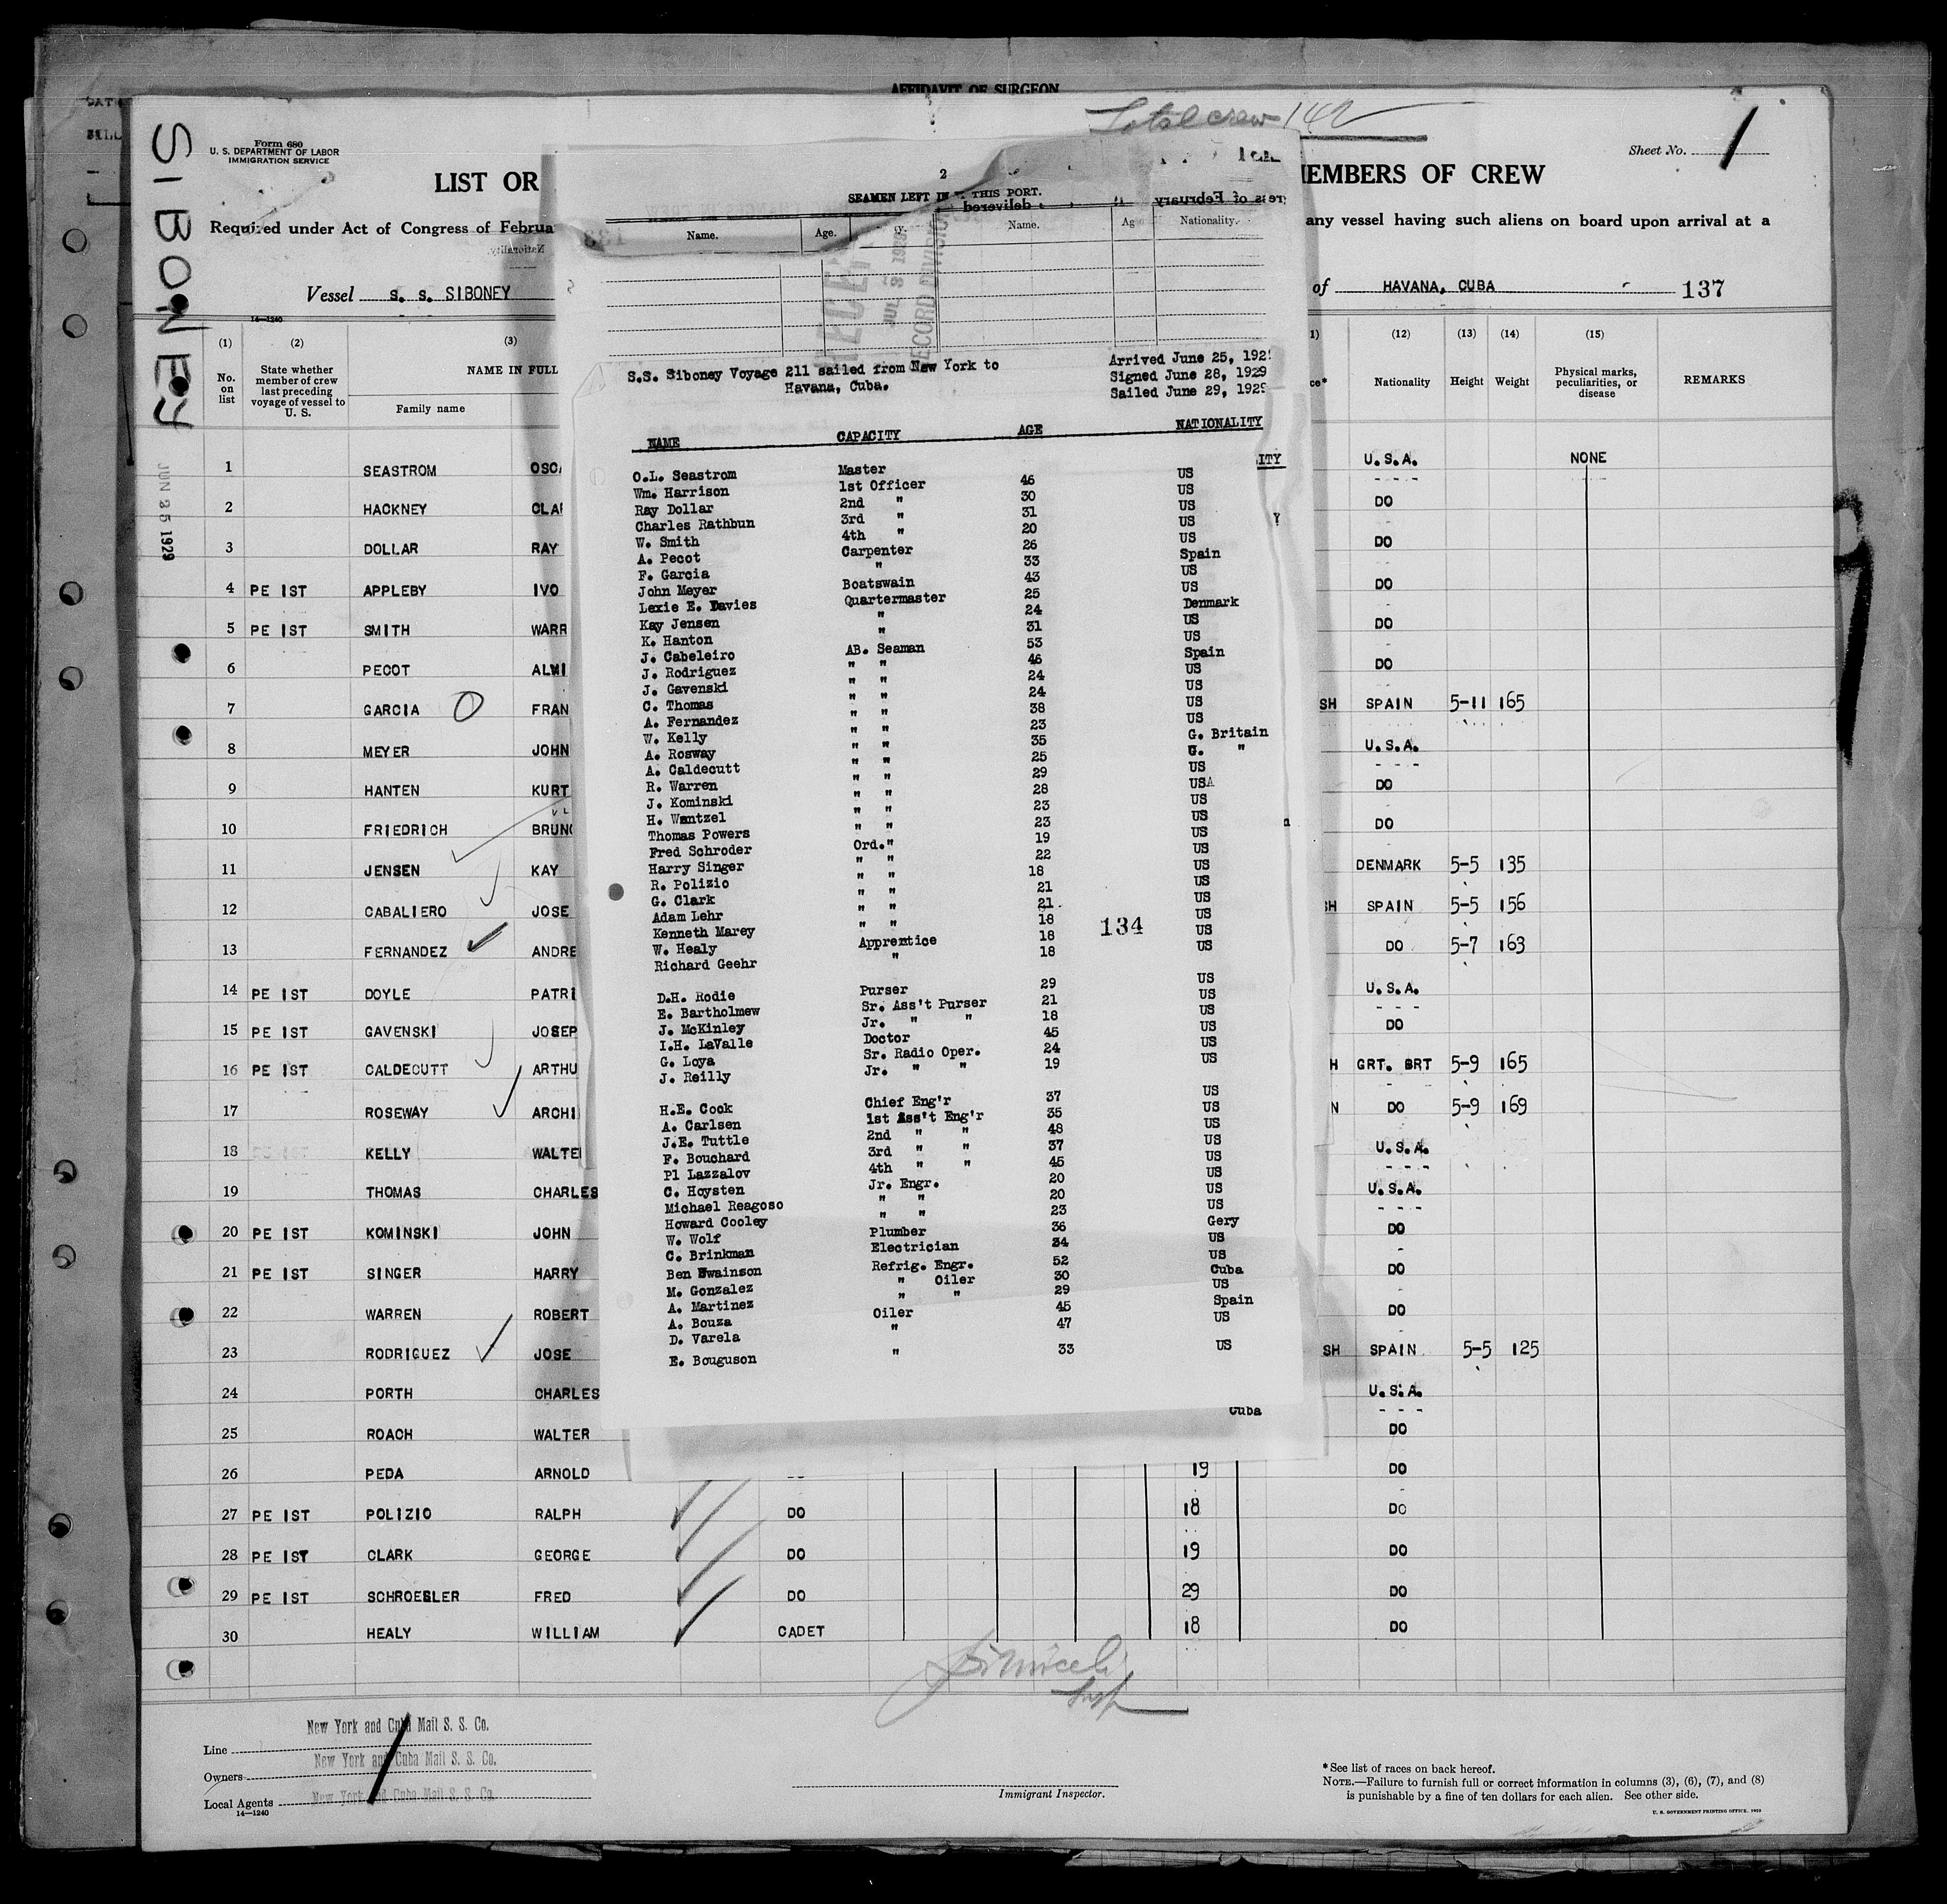 AFFIDAVIT OF SURGEON
Total crew 142
SIBONEY
Form 680
U. S. DEPARTMENT OF LABOR
IMMIGRATION SERVICE
Sheet No. 1
LIST OR
MEMBERS OF CREW
Required under Act of Congress of Februa
any vessel having such aliens on board upon arrival at a
Vessel S. S. SIBONEY
of HAVANA, CUBA
137
14—1240
JUN 25 1929
(1) (2) (3)
No. on list
State whether member of crew last preceding voyage of vessel to U. S.
NAME IN FULL
Family name
(12) (13) (14) (15)
Nationality Height Weight
Physical marks, peculiarities, or disease
REMARKS
1 SEASTROM OSCA U.S.A. NONE
2 HACKNEY CLA DO
3 DOLLAR RAY DO
4 PE IST APPLEBY IVO DO
5 PE IST SMITH WARR DO
6 PECOT ALMI DO
7 GARCIA O FRAN SH SPAIN 5-11 165
8 MEYER JOHN U.S.A.
9 HANTEN KURT DO
10 FRIEDRICH BRUNO DO
11 JENSEN KAY DENMARK 5-5 135
12 CABALIERO JOSE SH SPAIN 5-5 156
13 FERNANDEZ ANDRE DO 5-7 163
14 PE IST DOYLE PATRI U.S.A.
15 PE IST GAVENSKI JOSEP DO
16 PE IST CALDECUTT ARTHU H GRT. BRT 5-9 165
17 ROSEWAY ARCHI N DO 5-9 169
18 KELLY WALTE U.S.A.
19 THOMAS CHARLES U.S.A.
20 PE IST KOMINSKI JOHN DO
21 PE IST SINGER HARRY DO
22 WARREN ROBERT DO
23 RODRIGUEZ JOSE SH SPAIN 5-5 125
24 PORTH CHARLES U.S.A.
25 ROACH WALTER DO
26 PEDA ARNOLD 19 DO
27 PE IST POLIZIO RALPH DO 18 DO
28 PE IST CLARK GEORGE DO 19 DO
29 PE IST SCHROESLER FRED DO 29 DO
30 HEALY WILLIAM CADET 18 DO
2
SEAMEN LEFT IN THIS PORT.
delivered
Name. Age. Name. Nationality.
JUL 3 1929
RECORD DIVISION
S.S. Siboney Voyage 211 sailed from New York to
Havana, Cuba.
Arrived June 25, 192
Signed June 28, 1929
Sailed June 29, 1929
NAME CAPACITY AGE NATIONALITY
O.L. Seastrom Master 46 US
Wm. Harrison 1st Officer 30 US
Ray Dollar 2nd " 31 US
Charles Rathbun 3rd " 20 US
W. Smith 4th " 26 US
A. Pecot Carpenter 33 Spain
F. Garcia " 43 US
John Meyer Boatswain 25 US
Lexie E. Davies Quartermaster 24 Denmark
Kay Jensen " 31 US
K. Hanton " 53 US
J. Cabeleiro AB. Seaman 46 Spain
J. Rodriguez " " 24 US
J. Gavenski " " 24 US
C. Thomas " " 38 US
A. Fernandez " " 23 US
W. Kelly " " 35 G. Britain
A. Rosway " " 25 G. "
A. Caldecutt " " 29 US
R. Warren " " 28 USA
J. Kominski " " 23 US
H. Wentzel " " 23 US
Thomas Powers " " 19 US
Fred Schroder Ord." 22 US
Harry Singer " " 18 US
R. Polizio " " 21 US
G. Clark " " 21 US
Adam Lehr " " 18 US
Kenneth Marey " " 18 US
W. Healy Apprentice 18 US
Richard Geehr "
134
D.H. Rodie Purser 29 US
E. Bartholmew Sr. Ass't Purser 21 US
J. McKinley Jr. " " 18 US
I.H. LaValle Doctor 45 US
G. Loya Sr. Radio Oper. 24 US
J. Reilly Jr. " " 19 US
H.E. Cook Chief Eng'r 37 US
A. Carlsen 1st Ass't Eng'r 35 US
J.E. Tuttle 2nd " " 48 US
F. Bouchard 3rd " " 37 US
Pl Lazzalov 4th " " 45 US
C. Hoysten Jr. Engr. 20 US
Michael Reagoso " " 20 US
Howard Cooley " " 23 US
W. Wolf Plumber 36 Gery
C. Brinkman Electrician 34 US
Ben Swainson Refrig. Engr. 52 US
M. Gonzalez " Oiler 30 Cuba
A. Martinez " " 29 US
A. Bouza Oiler 45 Spain
D. Varela " 47 US
E. Bouguson " 33 US
Cuba
Line New York and Cuba Mail S. S. Co.
Owners New York and Cuba Mail S. S. Co.
Local Agents New York and Cuba Mail S. S. Co.
14—1240
Insp
Immigrant Inspector.
*See list of races on back hereof.
NOTE.—Failure to furnish full or correct information in columns (3), (6), (7), and (8)
is punishable by a fine of ten dollars for each alien. See other side.
U. S. GOVERNMENT PRINTING OFFICE, 1929